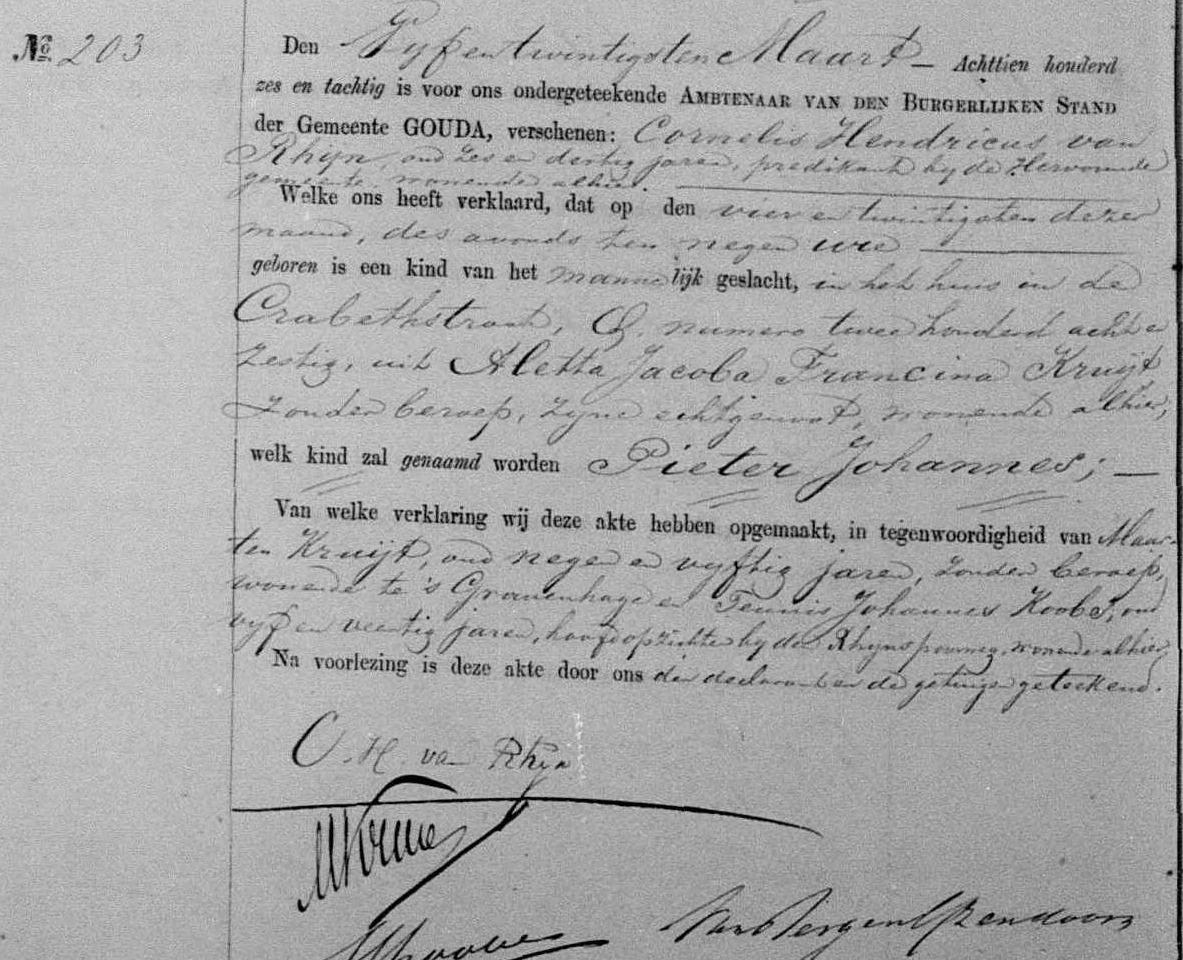 No. 203
Den Vyf en twintigsten Maart – Achttien honderd
zes en tachtig is voor ons ondergeteekende AMBTENAAR VAN DEN BURGERLIJKEN STAND
der Gemeente GOUDA, verschenen: Cornelis Hendricus van
Rhijn, oud zes en dertig jaren, predikant by de Hervormde
gemeente, wonende alhier.
Welke ons heeft verklaard, dat op den vier en twintigsten dezer
maand, des avonds ten negen ure
geboren is een kind van het mannelijk geslacht, in het huis in de
Crabethstraat, Q. numero twee honderd acht en
zestig, uit Aletta Jacoba Francina Kruijt
zonder beroep, zyne echtgenoot, wonende alhier,
welk kind zal genaamd worden Pieter Johannes; –
Van welke verklaring wij deze akte hebben opgemaakt, in tegenwoordigheid van Maar-
ten Kruijt, oud negen en vyftig jaren, zonder beroep,
wonende te 's Gravenhage en Teunis Johannes oud
vyf en veertig jaren, hoofdopzichter by den Rhynspoorweg, wonende alhier,
Na voorlezing is deze akte door ons den declarant en de getuigen geteekend.
C. H. van Rhijn
van Bergen IJzendoorn